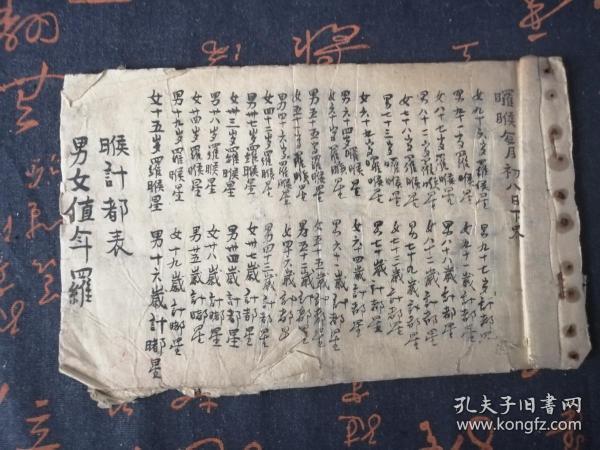 男女值年羅
睺計都表
女十五岁羅睺星 男十六歲計都星
男十九岁羅睺星 女十九歲計都星
女廿四岁羅睺星 男廿五歲計都星
男廿八岁羅睺星 女廿八歲計都星
女卅三岁羅睺星 男卅四歲計都星
男卅七岁羅睺星 女卅七歲計都星
女四十二岁羅睺星 男四十三歲計都星
男四十六岁羅睺星 女四十六歲計都星
女五十一岁羅睺星 男五十二歲計都星
男五十五岁羅睺星 女五十五歲計都星
女六十岁羅睺星 男六十一歲計都星
男六十四岁羅睺星 女六十四歲計都星
女六十九岁羅睺星 男七十歲計都星
男七十三岁羅睺星 女七十三歲計都星
女七十八岁羅睺星 男七十九歲計都星
男八十二岁羅睺星 女八十二歲計都星
女八十七岁羅睺星 男八十八歲計都星
男九十一岁羅睺星 女九十一歲計都星
女九十六岁羅睺星 男九十七岁計都
羅睺每月初八日下界
孔夫子旧书网
www.kongfz.com